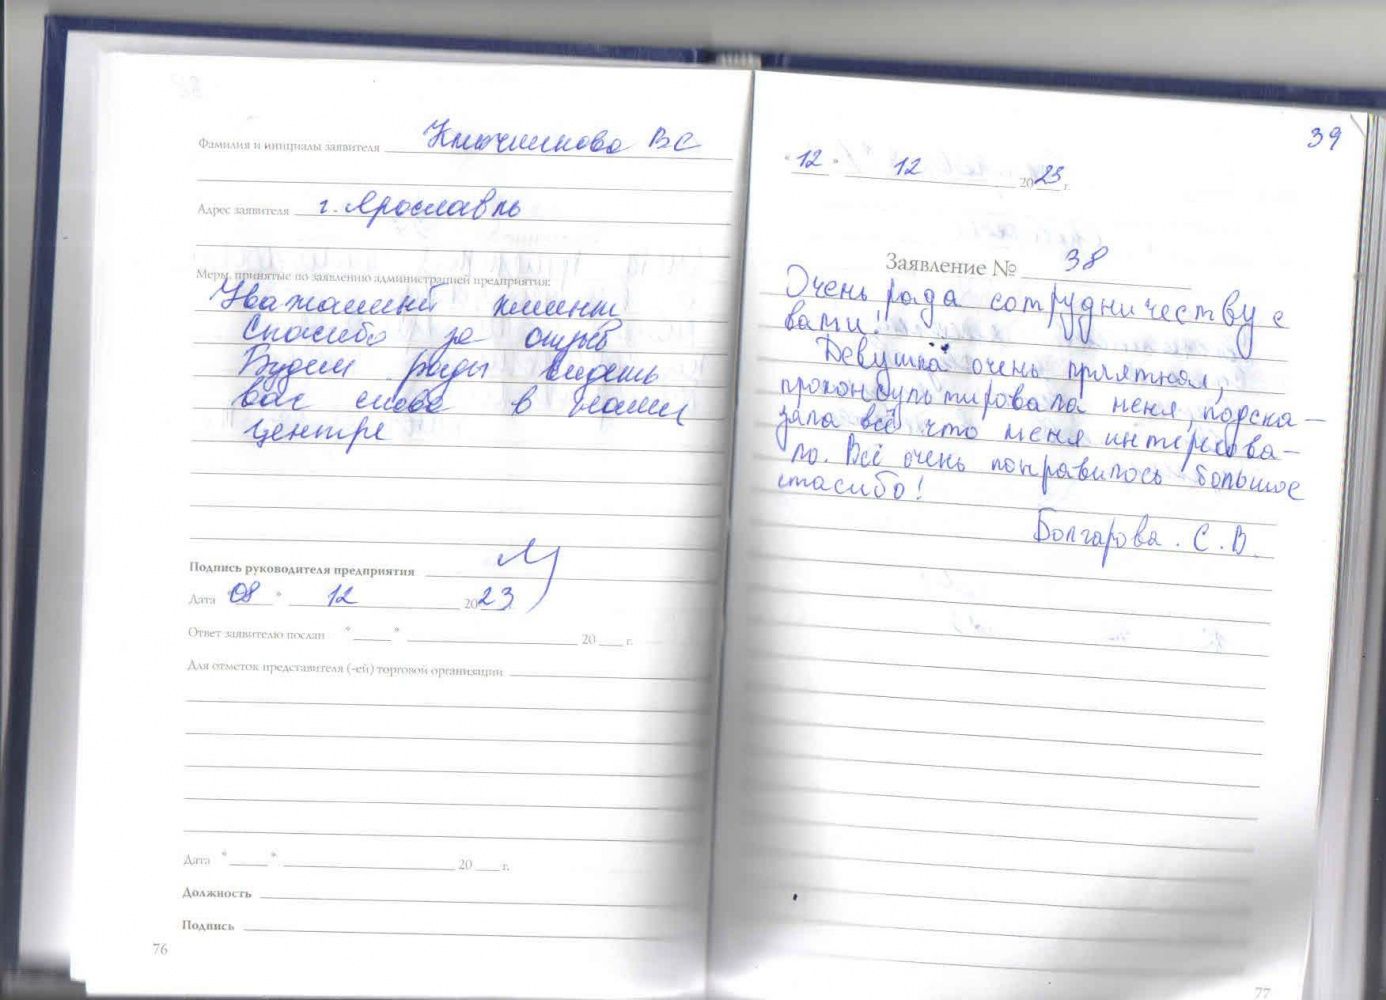 Фамилия и инициалы заявителя Ключникова ВС
Адрес заявителя г. Ярославль
Меры, принятые по заявлению администрацией предприятия:
Уважаемый клиент
Спасибо за отзыв
Будем рады видеть
вас снова в нашем
центре
Подпись руководителя предприятия
Дата "08" 12 2023
Ответ заявителю послан "____" ____ 20 ___ г.
Для отметок представителя (-ей) торговой организации
Дата "____" ____ 20 ___ г.
Должность
Подпись
76
39
"12" 12 2023 г.
Заявление № 38
Очень рада сотрудничеству с
вами!
Девушка очень приятная,
проконсультировала меня, подска-
зала всё что меня интересова-
ло. Всё очень понравилось большое
спасибо!
Болгарова. С. В.
77